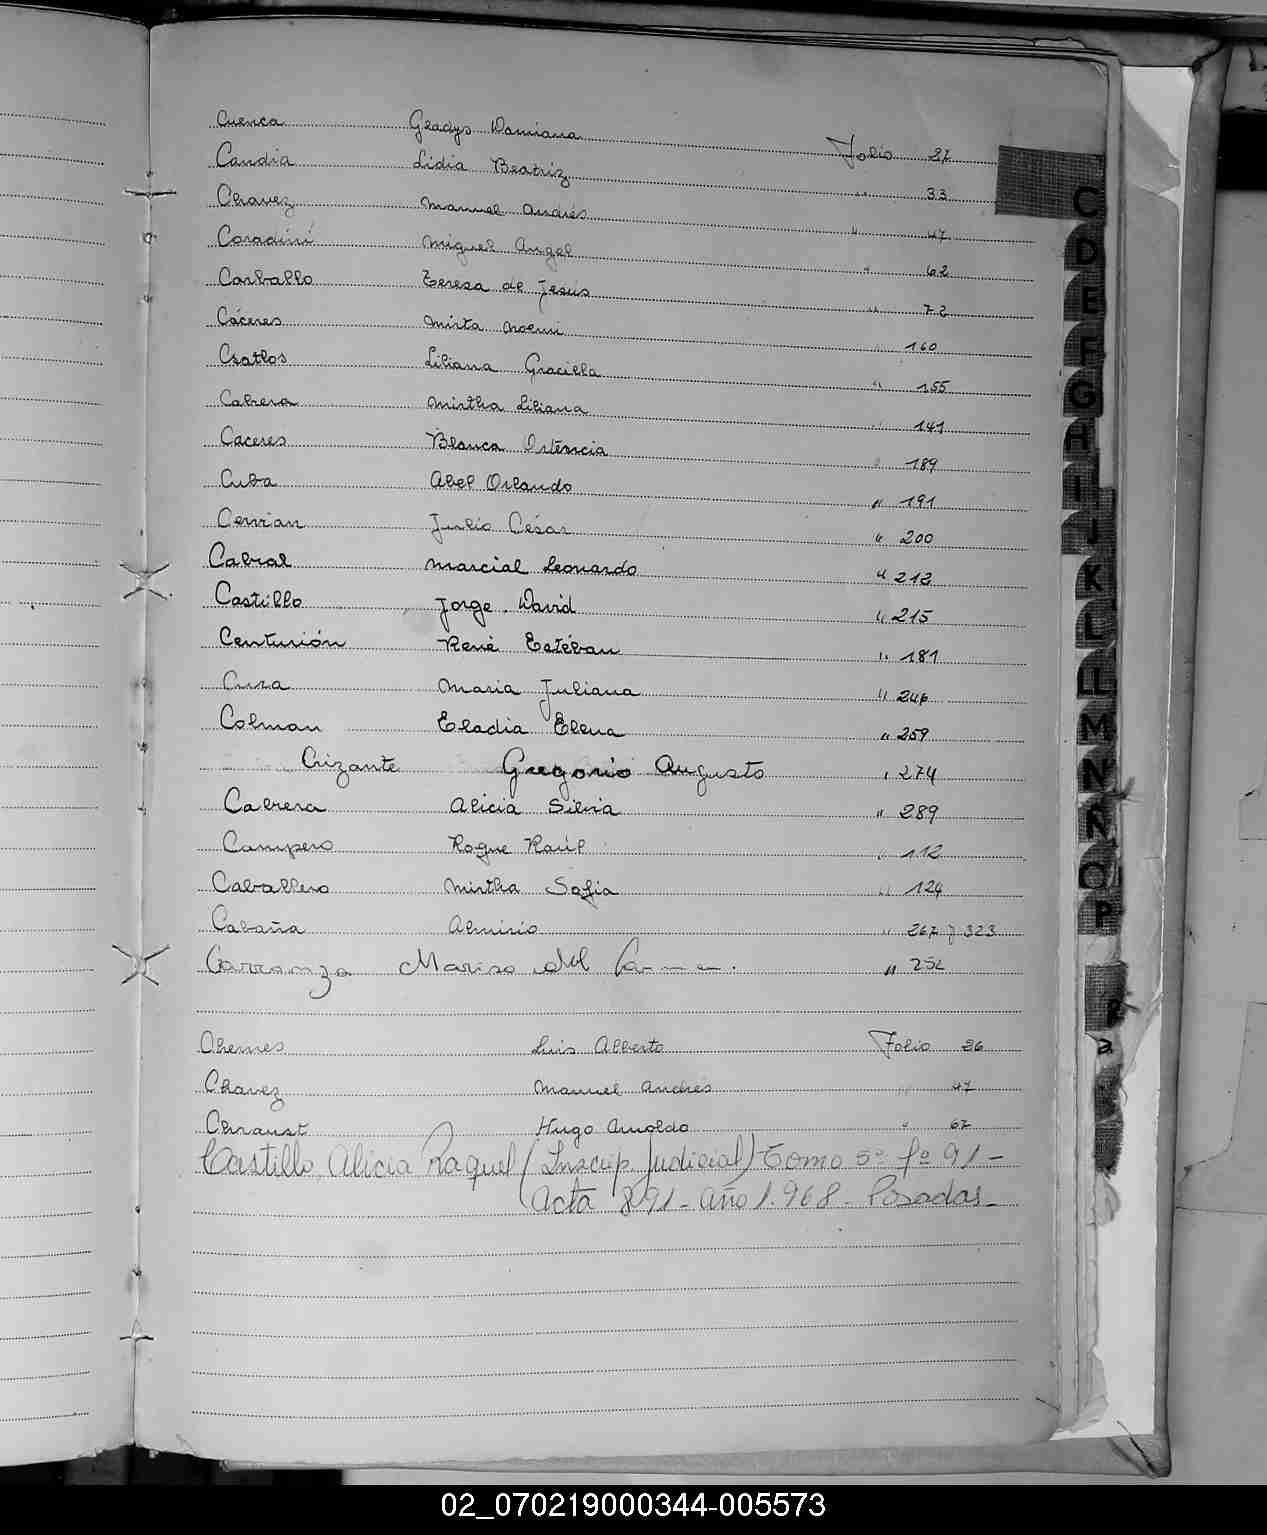 Cuenca Gladys Damiana Folio 27
Candia Lidia Beatriz " 33
Chavez Manuel Andrés " 47
Coradini Miguel Angel " 62
Carballo Teresa de Jesús " 72
Cáceres Mirta Noemi " 160
Csatlos Liliana Graciella " 155
Cabrera Mirtha Liliana " 141
Caceres Blanca Ortencia " 189
Cuba Abel Orlando " 191
Julio César " 200
Cabral Marcial Leonardo " 212
Castillo Jorge David " 215
Centurión René Estéban " 181
Maria Juliana " 246
Colman Eladia Elena " 259
Crizante Gregorio Augusto " 274
Cabrera Alicia Silvia " 289
Campero Roque Raúl " 112
Caballero Mirtha Sofia " 124
Cabaña Almirio " 267 y 323
Carranza del Carmen. "
Chemes Luis Alberto Folio 26
Chavez Manuel Andrés " 47
Chraust Hugo Arnoldo " 67
Castillo, Alicia Raquel (Inscrip. Judicial) Tomo 5º fº 91-
Acta 891- Año 1.968- Posadas-
C
D
E
F
G
H
I
J
K
L
LL
M
N
Ñ
O
P
02_070219000344-005573